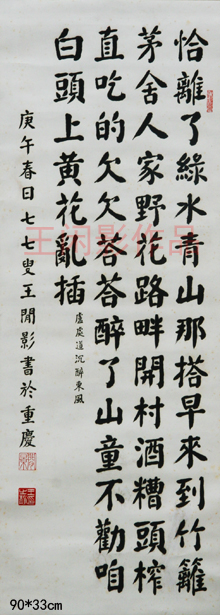 恰離了綠水青山那搭早來到竹籬
茅舍人家野花路畔開村酒糟頭榨
直吃的欠欠荅荅醉了山童不勸咱
白頭上黃花亂插
盧處道沉醉東風
庚午春日七七叟王閒影書於重慶
王闲影作品
90*33cm